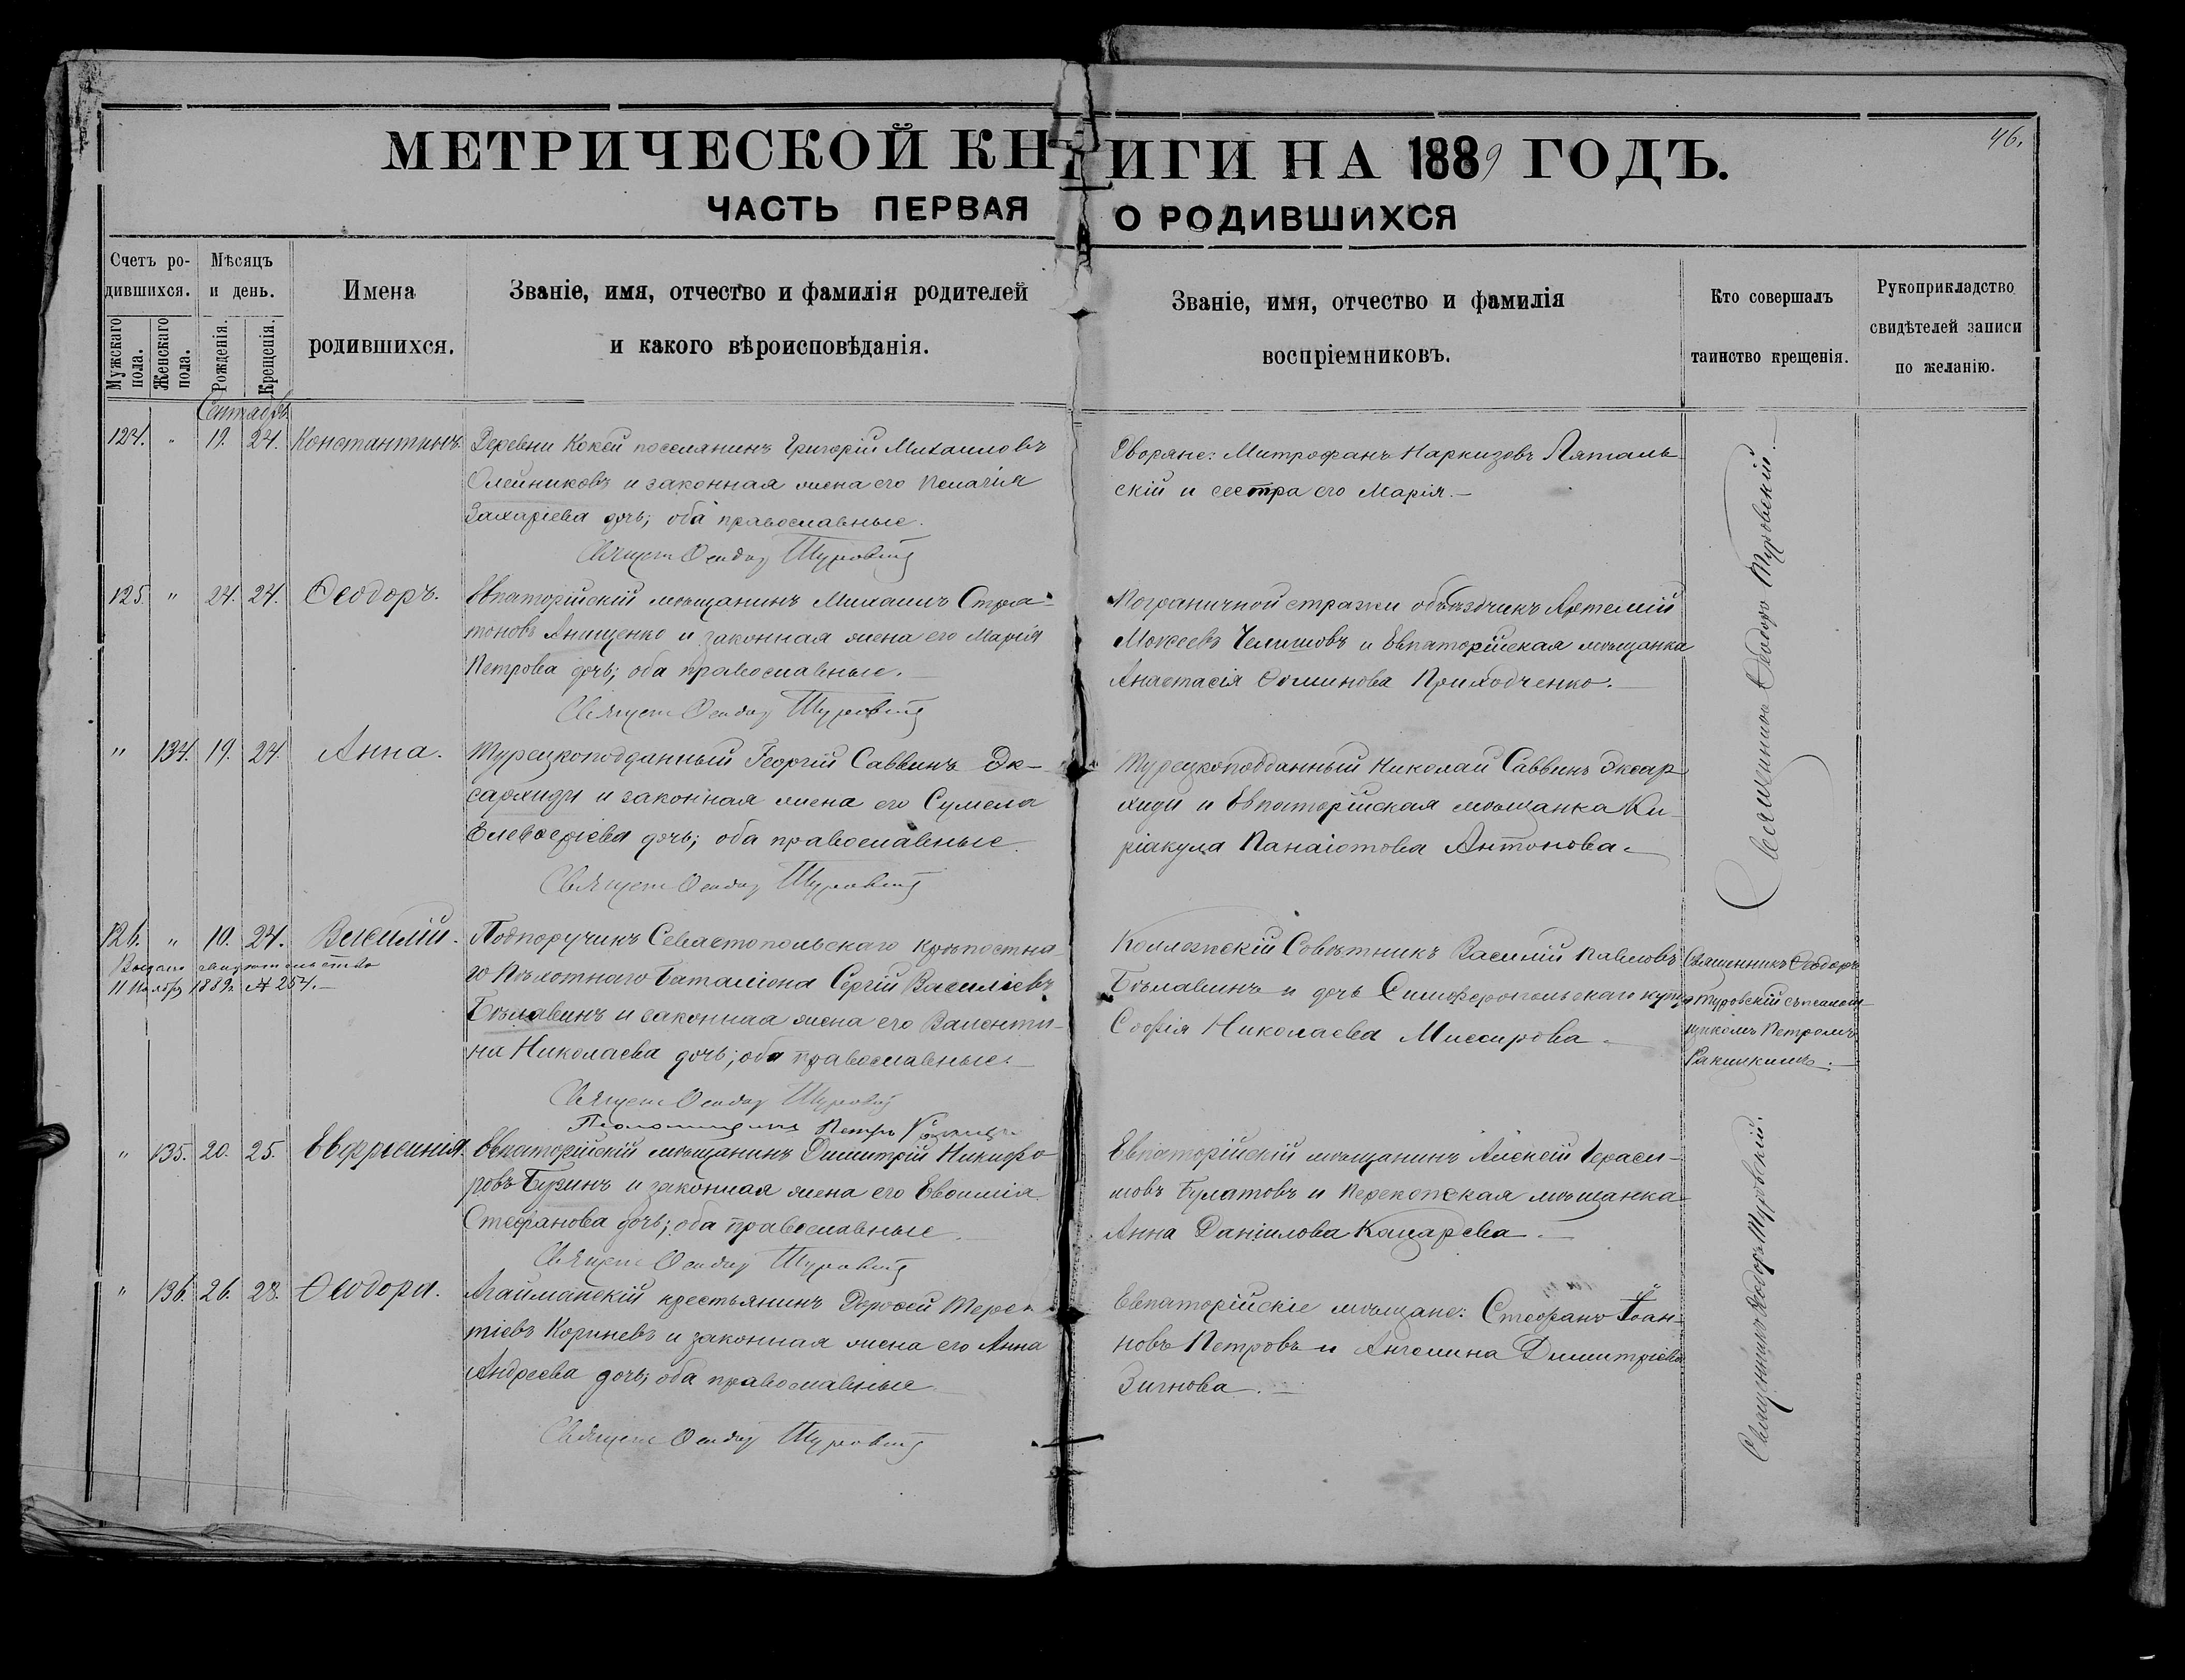 46.
МЕТРИЧЕСКОЙ КНИГИ НА 1889 ГОДЪ.
ЧАСТЬ ПЕРВАЯ О РОДИВШИХСЯ
Счетъ ро-
дившихся.
Мужскаго пола.
Женскаго пола.
Мѣсяцъ
и день.
Рожденія.
Крещенія.
Имена
родившихся.
Званіе, имя, отчество и фамилія родителей
и какого вѣроисповѣданія.
Званіе, имя, отчество и фамилія
воспріемниковъ.
Кто совершалъ
таинство крещенія.
Рукоприкладство
свидѣтелей записи
по желанію.
Сентябрь
124. " 19. 24. Константинъ.
Деревни Кокей поселянинъ Григорій Михаиловъ
Олейниковъ и законная жена его Пелагія
Захаріева дочь; оба православные.
Священ Феодор Туровскій
Дворяне: Митрофанъ Наркизовъ Пяталь-
скій и сестра его Марія.—
125. " 24. 24. Феодоръ.
Евпаторійскій мѣщанинъ Михаилъ Стра-
тоновъ Анищенко и законная жена его Марія
Петрова дочь; оба православные.
Священ Феодор Туровскій
Пограничной стражи объѣздчикъ Артемій
Моисеевъ Челишовъ и Евпаторійская мѣщанка
Анастасія Фоминова Приходченко.—
" 134. 19. 24. Анна.
Турецкоподданный Георгій Саввинъ Эк-
сархиди и законная жена его Сумела
Елевферіева дочь; оба православные.
Священ Феодор Туровскій
Турецкоподданный Николай Саввинъ Эксар-
хиди и Евпаторійская мѣщанка Ки-
ріакула Панаіотова Антонова.—
Священникъ Феодоръ Туровскій.—
126. " 10. 24. Василій.
Выдано свидѣтельство
11 Ноября 1889г. № 254.—
Подпоручикъ Севастопольскаго крѣпостна-
го Пѣхотнаго Баталіона Сергій Василіевъ
Бѣлавинъ и законная жена его Валенти-
на Николаева дочь; оба православные.—
Священ Феодор Туровскій
Псаломщикъ Петръ
Коллежскій Совѣтникъ Василій Павловъ
Бѣлавинъ и дочь Симферопольскаго купца
Софія Николаева Миссирова.—
Священникъ Феодоръ
Туровскій съ псалом-
щикомъ Петромъ
" 135. 20. 25. Евфросинія.
Евпаторійскій мѣщанинъ Димитрій Никифо-
ровъ Бузинъ и законная жена его Евфимія
Стефанова дочь; оба православные.
Священ Феодор Туровскій
Евпаторійскій мѣщанинъ Алексій Гераси-
мовъ Булатовъ и Перекопская мѣщанка
Анна Даніилова Кацарева.—
" 136. 26. 28. Феодора.
Агайманскій крестьянинъ Дорофей Терен-
тіевъ Корневъ и законная жена его Анна
Андреева дочь; оба православные
Священ Феодор Туровскій
Евпаторійскіе мѣщане: Стефанъ Іоан-
новъ Петровъ и Ангелина Димитріева
Зигнова.—
Священникъ Феодоръ Туровскій.